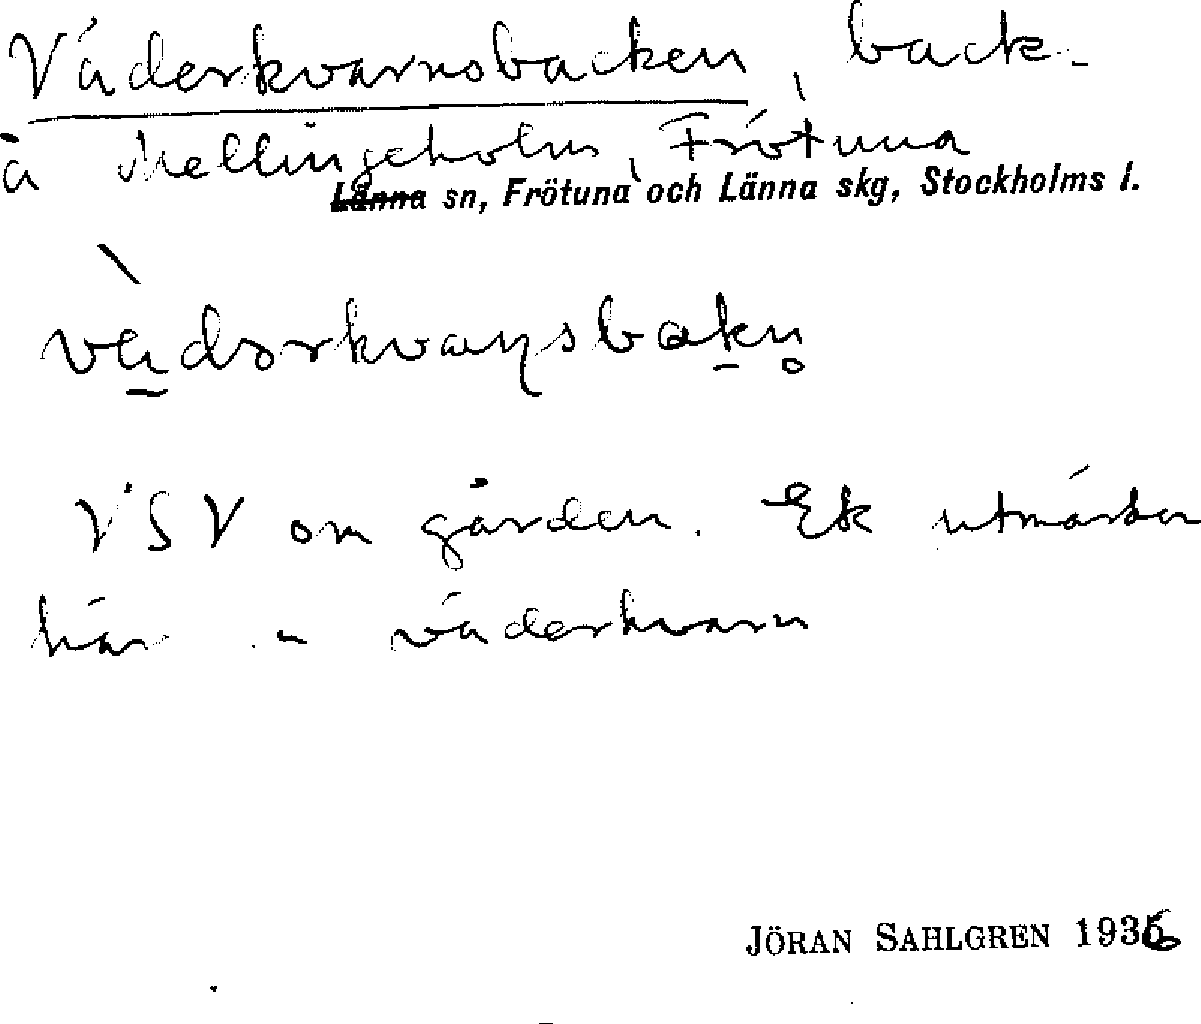 Väderkvarnsbacken, back-
å Mellingeholm, Frötuna
Länna sn, Frötuna och Länna skg, Stockholms l.
vädərkvaɳsbakn̥
VSV om gården. Ek utmärker
här väderkvarn
JÖRAN SAHLGREN 1936